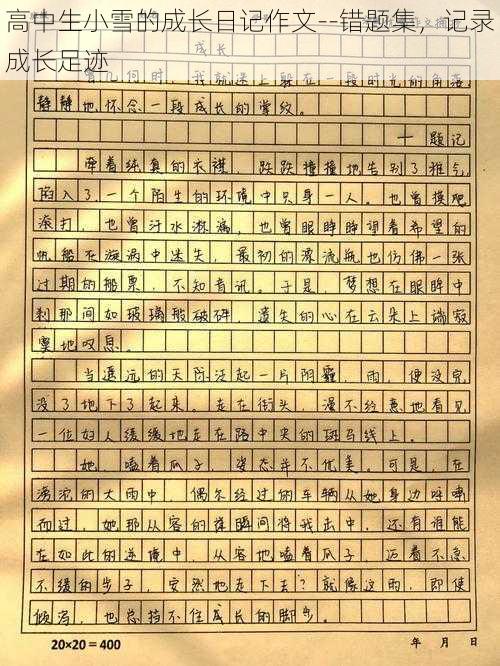 高中生小雪的成长日记作文--错题集，记录
成长足迹
成长
曾几何时，我就迷上躲在一段时光的角落，
静静地怀念一段成长的掌纹。
——题记
牵着纯真的衣襟，跌跌撞撞地告别了稚气，
陷入了一个陌生的环境中只身一人。也曾摸爬
滚打，也曾汗水淋漓，也曾眼睁睁望着希望的
帆船在漩涡中迷失，最初的漂流瓶也仿佛一张
过期的船票，不知音讯。于是，梦想在眼眸中
刹那间如玻璃般破碎，遗失的心在云朵上端寂
寞地叹息。
当遥远的天际泛起一片阴霾，雨，便没完
没了地下了起来。走在街头，漫不经意地看见
一位妇人缓缓地走在路中央的斑马线上。
她，嗑着瓜子，姿态并不优美。可是，在
滂沱的大雨中，偶尔经过的车辆从她身边呼啸
而过，她那从容的 瞬间将我击中，还有谁能
在如此的逆境中，从容地嗑着瓜子，迈着不急
不缓的步子，安然地走下去？就像这雨，即使
倾泻，也总挡不住成长的脚步。
20×20=400 年 月 日